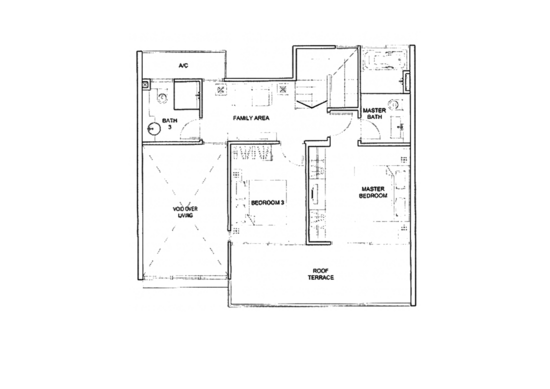 A/C
BATH
3
FAMILY AREA
MASTER
BATH
VOID OVER
LIVING
BEDROOM 3
MASTER
BEDROOM
ROOF
TERRACE